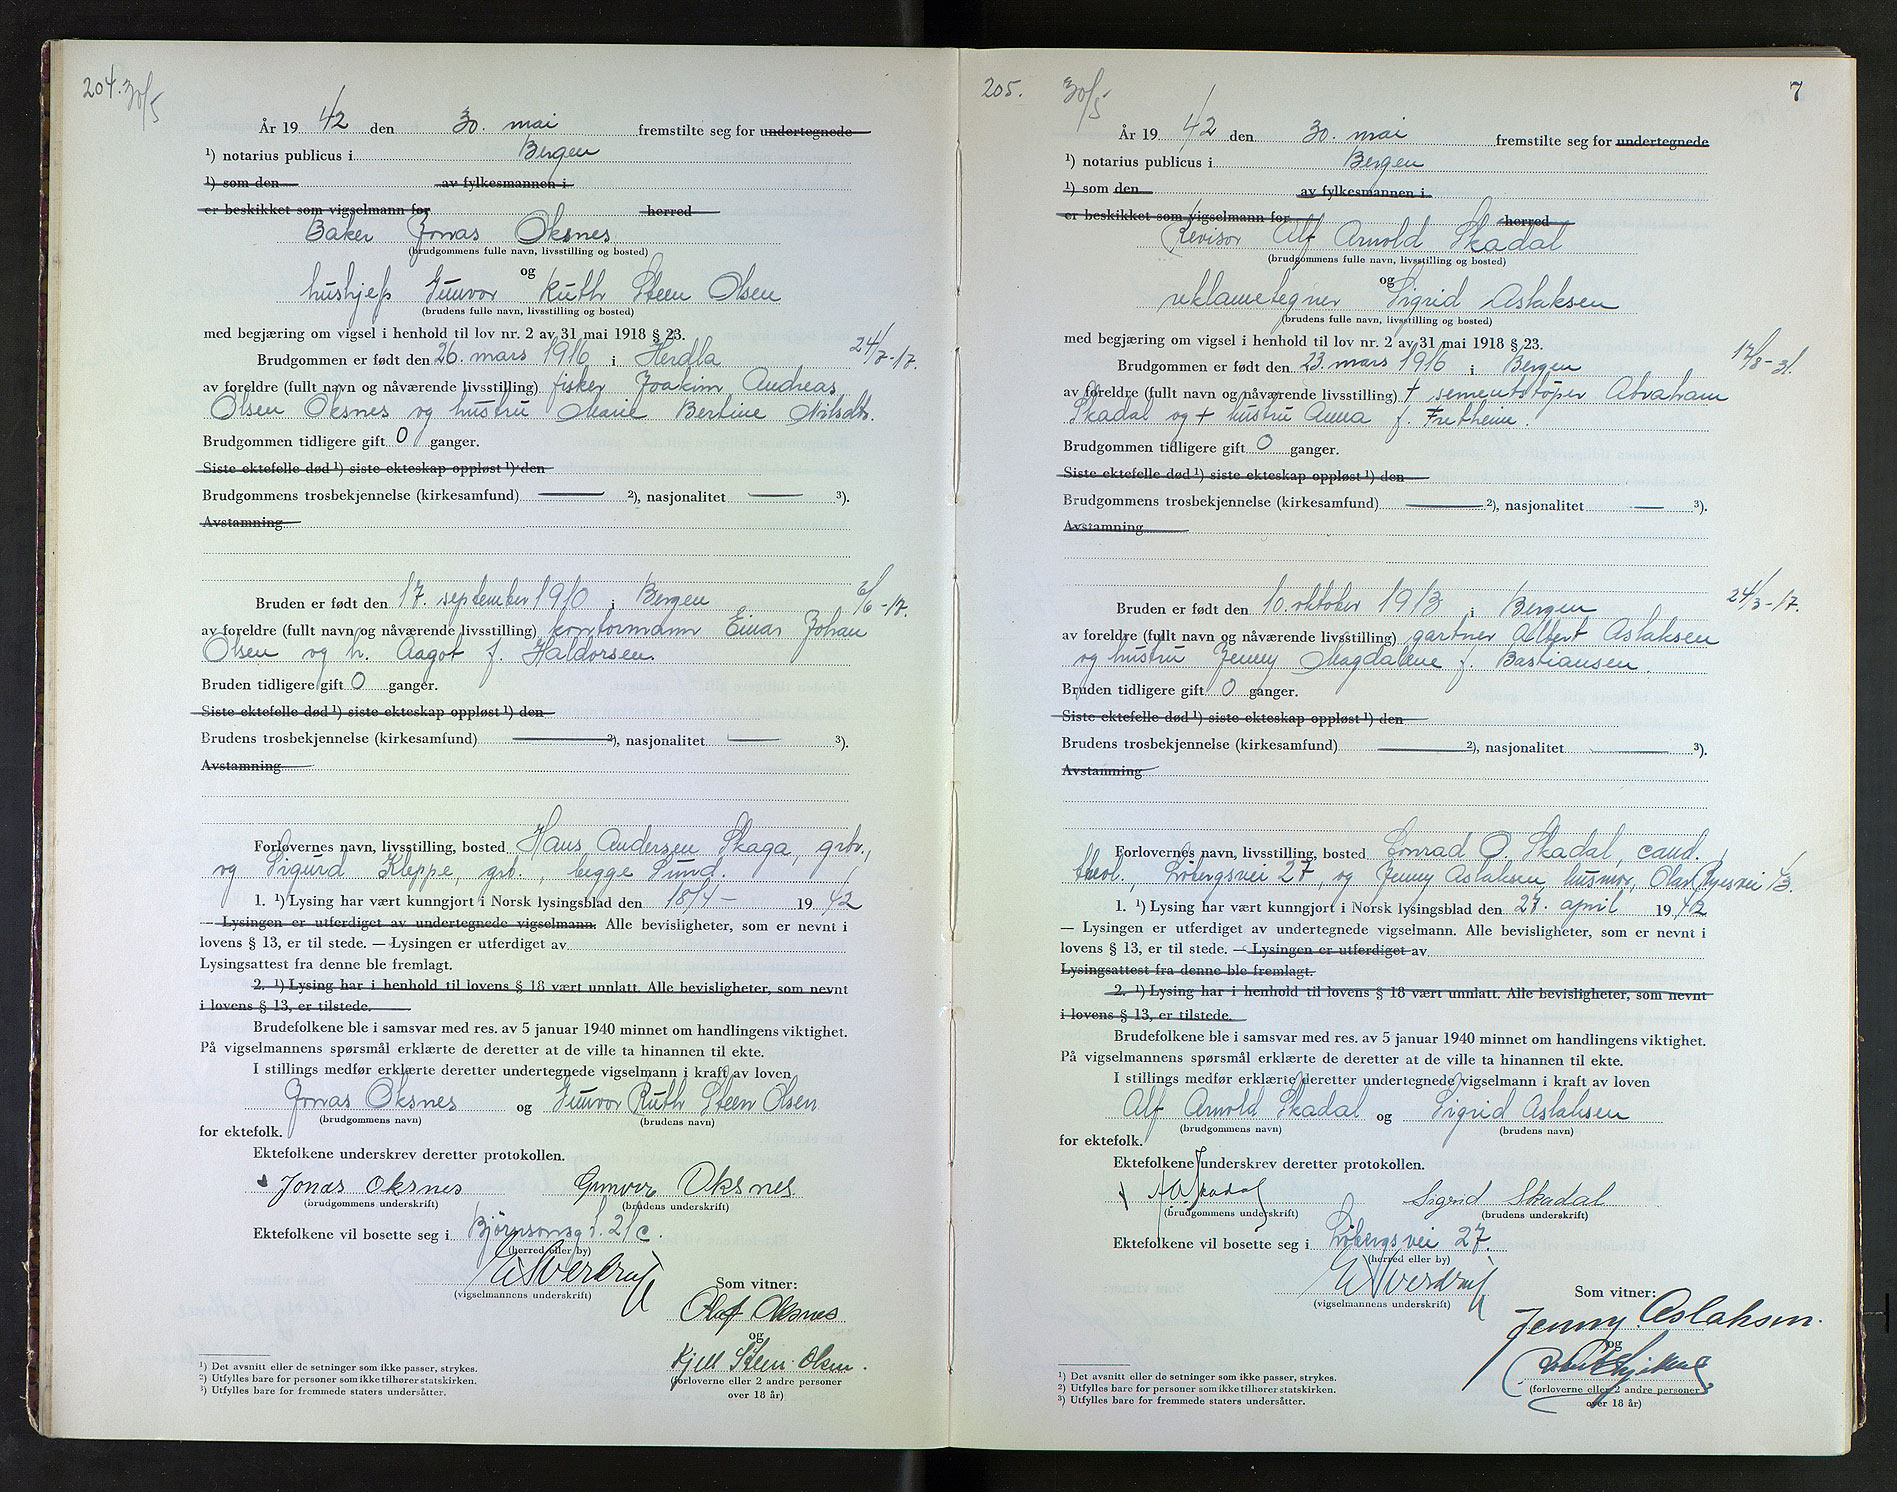 204. 30/5
År 19 42 den 30. mai fremstilte seg for undertegnede
¹) notarius publicus i Bergen
¹) som den av fylkesmannen i
er beskikket som vigselmann for herred
Baker Jonas Oksnes
(brudgommens fulle navn, livsstilling og bosted)
og
hushjelp Gunvor Ruth Steen Olsen
(brudens fulle navn, livsstilling og bosted)
med begjæring om vigsel i henhold til lov nr. 2 av 31 mai 1918 § 23.
Brudgommen er født den 26. mars 1916 i Herdla 24/7-17.
av foreldre (fullt navn og nåværende livsstilling) fisker Joakim Andreas
Olsen Oksnes og hustru Marie Bertine Nilsdtr.
Brudgommen tidligere gift 0 ganger.
Siste ektefelle død ¹) siste ekteskap oppløst ¹) den
Brudgommens trosbekjennelse (kirkesamfund) ²), nasjonalitet ³).
Avstamning
Bruden er født den 17. september 1910 i Bergen 6/6-17.
av foreldre (fullt navn og nåværende livsstilling) kontormann Einar Johan
Olsen og h. Aagot f. Haldorsen.
Bruden tidligere gift 0 ganger.
Siste ektefelle død ¹) siste ekteskap oppløst ¹) den
Brudens trosbekjennelse (kirkesamfund) ²), nasjonalitet ³).
Avstamning
Forlovernes navn, livsstilling, bosted Hans Andersen Skaga, grbr.,
og Sigurd Kleppe, grb., begge Sund.
1. ¹) Lysing har vært kunngjort i Norsk lysingsblad den 18/4 - 19 42
— Lysingen er utferdiget av undertegnede vigselmann. Alle bevisligheter, som er nevnt i
lovens § 13, er til stede. — Lysingen er utferdiget av
Lysingsattest fra denne ble fremlagt.
2. ¹) Lysing har i henhold til lovens § 18 vært unnlatt. Alle bevisligheter, som nevnt
i lovens § 13, er tilstede.
Brudefolkene ble i samsvar med res. av 5 januar 1940 minnet om handlingens viktighet.
På vigselmannens spørsmål erklærte de deretter at de ville ta hinannen til ekte.
I stillings medfør erklærte deretter undertegnede vigselmann i kraft av loven
Jonas Oksnes og Gunvor Ruth Steen Olsen
(brudgommens navn) (brudens navn)
for ektefolk.
Ektefolkene underskrev deretter protokollen.
Jonas Oksnes Gunvor Oksnes
(brudgommens underskrift) (brudens underskrift)
Ektefolkene vil bosette seg i Bjørnsonsgt. 21c.
(herred eller by)
(vigselmannens underskrift)
Som vitner:
Olaf Oksnes
og
Kjell Steen-Olsen.
(forloverne eller 2 andre personer
over 18 år)
¹) Det avsnitt eller de setninger som ikke passer, strykes.
²) Utfylles bare for personer som ikke tilhører statskirken.
³) Utfylles bare for fremmede staters undersåtter.
205. 30/5 7
År 19 42 den 30. mai fremstilte seg for undertegnede
¹) notarius publicus i Bergen
¹) som den av fylkesmannen i
er beskikket som vigselmann for herred
Revisor Alf Arnold Skadal
(brudgommens fulle navn, livsstilling og bosted)
og
reklametegner Sigrid Aslaksen
(brudens fulle navn, livsstilling og bosted)
med begjæring om vigsel i henhold til lov nr. 2 av 31 mai 1918 § 23.
Brudgommen er født den 23. mars 1916 i Bergen 17/8-31.
av foreldre (fullt navn og nåværende livsstilling) + sementstøper Abraham
Skadal og + hustru Anna f. Fretheim.
Brudgommen tidligere gift 0 ganger.
Siste ektefelle død ¹) siste ekteskap oppløst ¹) den
Brudgommens trosbekjennelse (kirkesamfund) ²), nasjonalitet ³).
Avstamning
Bruden er født den 10. oktober 1913 i Bergen 24/3-17.
av foreldre (fullt navn og nåværende livsstilling) gartner Albert Aslaksen
og hustru Jenny Magdalene f. Bastiansen.
Bruden tidligere gift 0 ganger.
Siste ektefelle død ¹) siste ekteskap oppløst ¹) den
Brudens trosbekjennelse (kirkesamfund) ²), nasjonalitet ³).
Avstamning
Forlovernes navn, livsstilling, bosted Conrad O. Skadal, cand.
theol., Löbergsvei 27, og Jenny Aslaksen, husmor, Olav Ryesvei 43.
1. ¹) Lysing har vært kunngjort i Norsk lysingsblad den 27. april 19 42
— Lysingen er utferdiget av undertegnede vigselmann. Alle bevisligheter, som er nevnt i
lovens § 13, er til stede. — Lysingen er utferdiget av
Lysingsattest fra denne ble fremlagt.
2. ¹) Lysing har i henhold til lovens § 18 vært unnlatt. Alle bevisligheter, som nevnt
i lovens § 13, er tilstede.
Brudefolkene ble i samsvar med res. av 5 januar 1940 minnet om handlingens viktighet.
På vigselmannens spørsmål erklærte de deretter at de ville ta hinannen til ekte.
I stillings medfør erklærte deretter undertegnede vigselmann i kraft av loven
Alf Arnold Skadal og Sigrid Aslaksen
(brudgommens navn) (brudens navn)
for ektefolk.
Ektefolkene underskrev deretter protokollen.
A A Skadal Sigrid Skadal
(brudgommens underskrift) (brudens underskrift)
Ektefolkene vil bosette seg i Löbergsvei 27.
(herred eller by)
(vigselmannens underskrift)
Som vitner:
Jenny Aslaksen.
og
(forloverne eller 2 andre personer
over 18 år)
¹) Det avsnitt eller de setninger som ikke passer, strykes.
²) Utfylles bare for personer som ikke tilhører statskirken.
³) Utfylles bare for fremmede staters undersåtter.